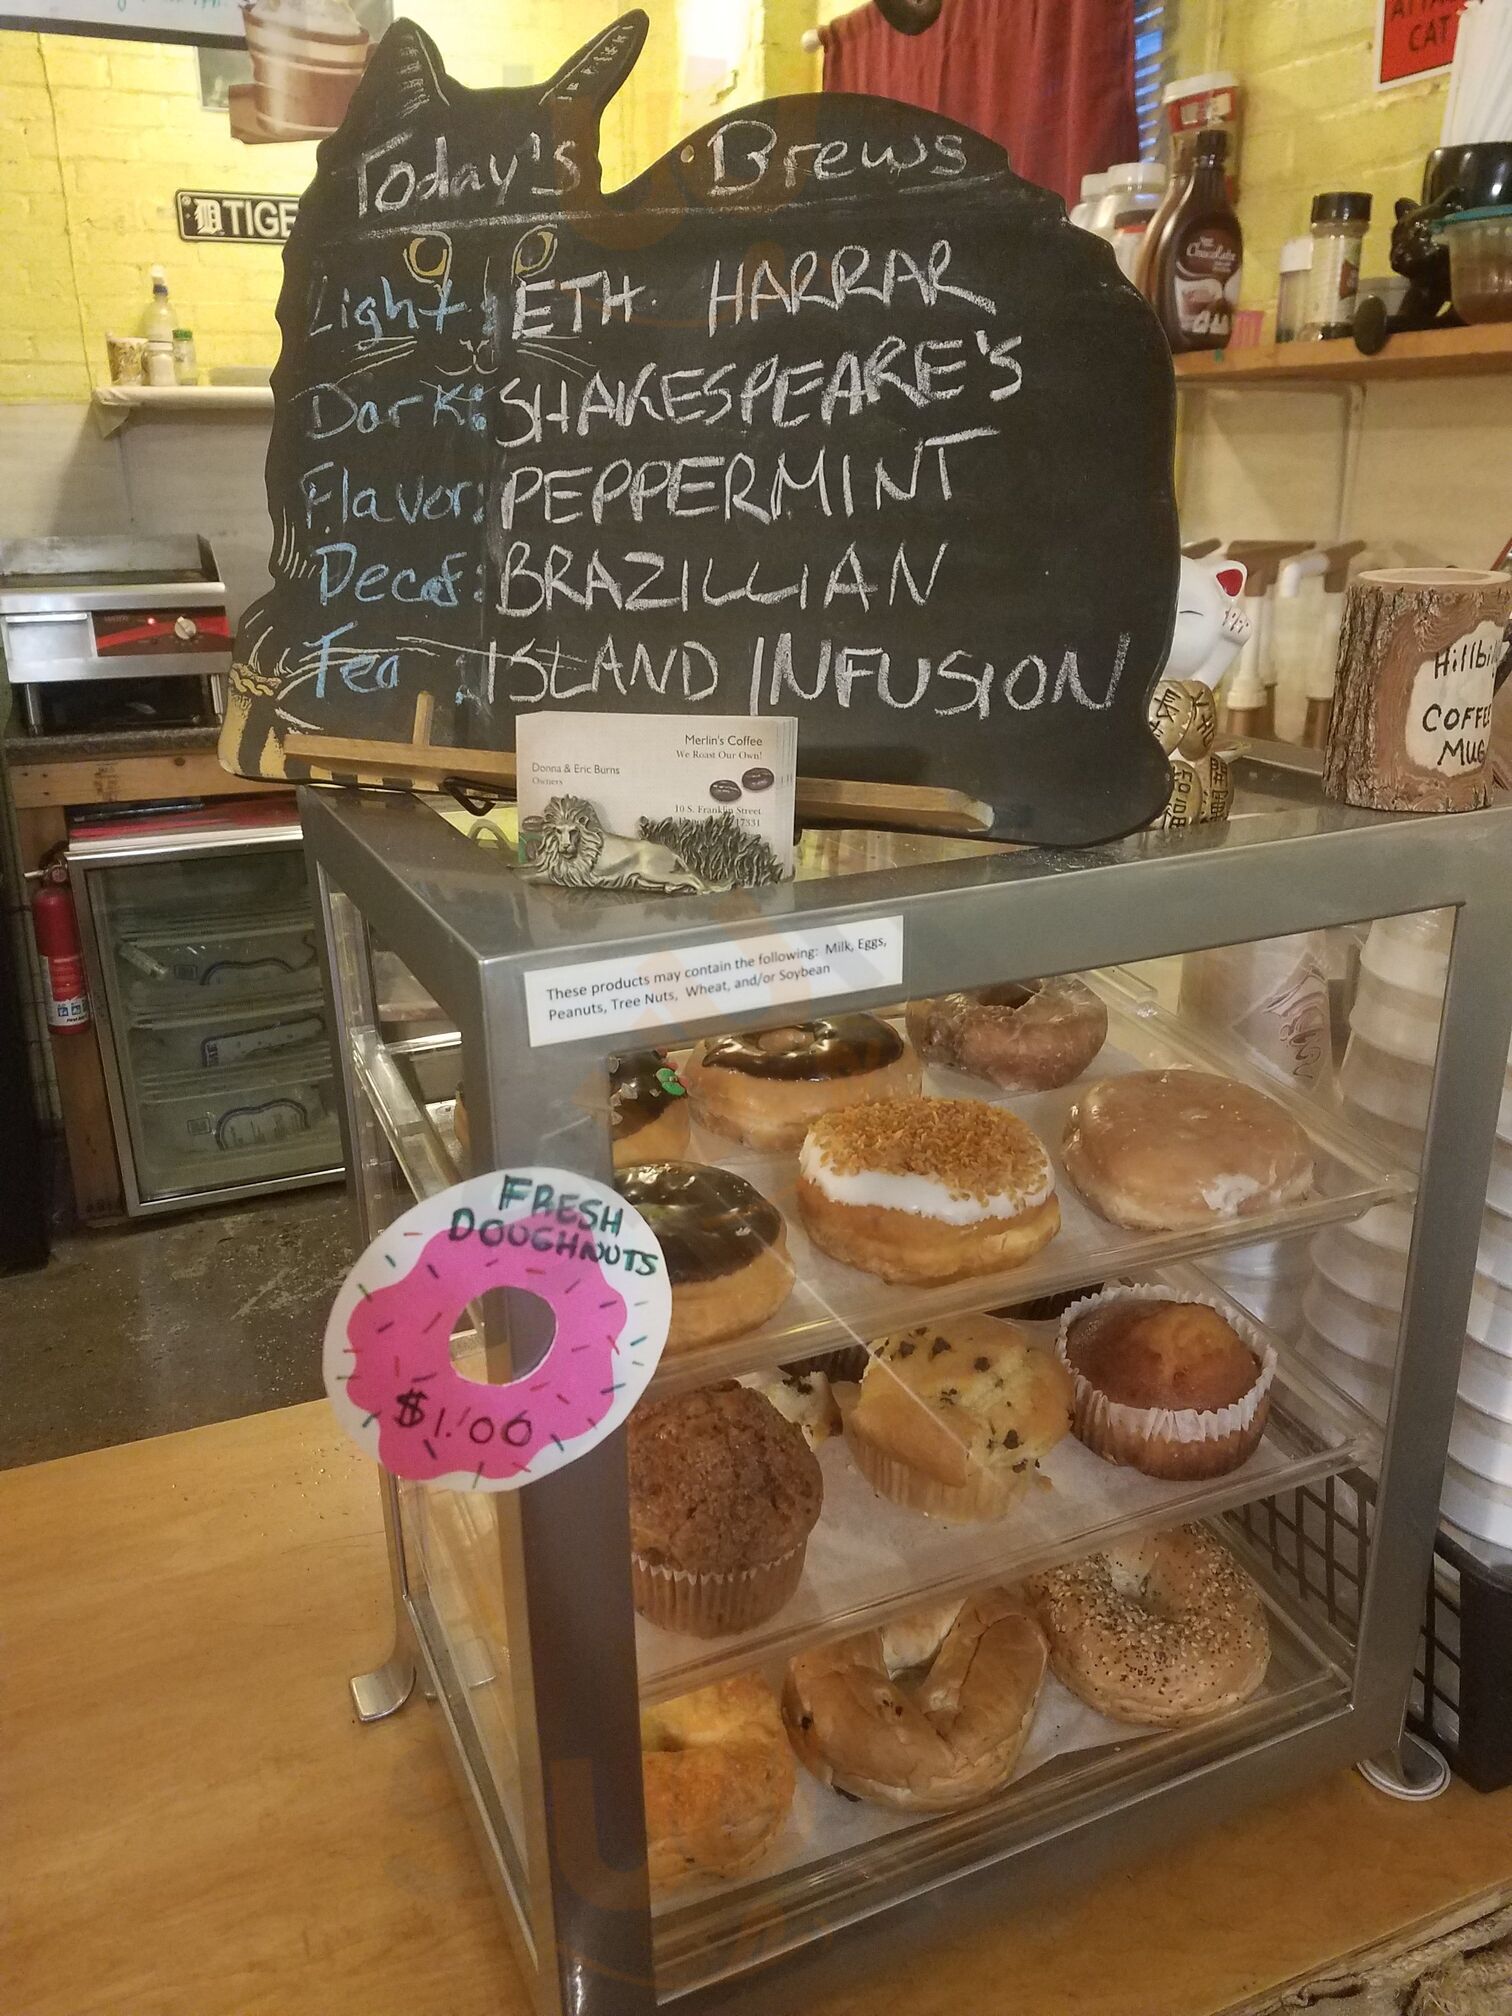 ATTACK
CAT
D TIGE
Today's Brews
Light: ETH HARRAR
Dark: SHAKESPEARE'S
Flavor: PEPPERMINT
Decaf: BRAZILLIAN
Tea : ISLAND INFUSION
Chocolate
Hillbi
COFFEE
MUG
Merlin's Coffee
We Roast Our Own!
Donna & Eric Burns
Owners
10 S. Franklin Street
17331
These products may contain the following: Milk, Eggs,
Peanuts, Tree Nuts, Wheat, and/or Soybean
FRESH
DOUGHNUTS
$1.00